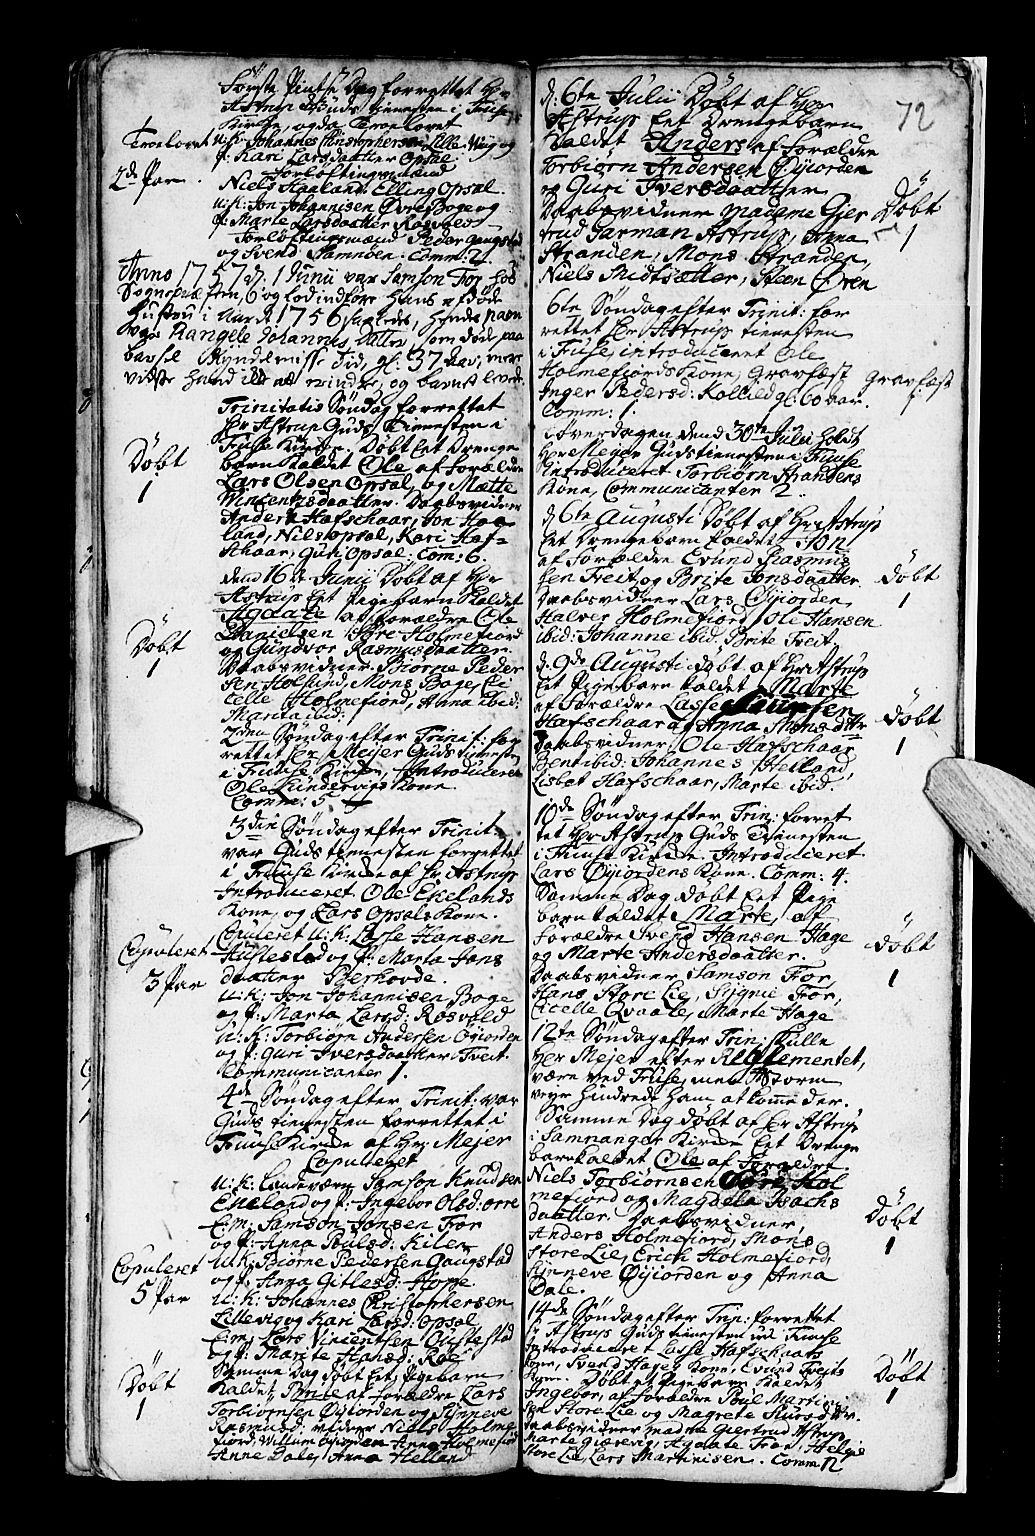 Første Pintse Dag forrettet Hr
Astrup Guds tienesten i Fuuse
Kirke, og da Troelovet
Troelovet
2de Par
u: k: Johannes Christophersen Lille Wiig og
p: Kari Larsdaatter Opsal
Forloftingsmænd
Niels Haaland, Elling Opsal
u: k: Jon Johannisen Øvre Boge og
p: Marte Larsdaatter Rosvold
Forloftingsmænd Peder Gangstad
og Svend Samnøen. Comm: 21
Anno 1757 d. 1 Junii var Samson For hos
Sognepræsten, og lod indføre Hans
Hustru i Aaret 1756
Johannis
Kyndelmisse Tid, gl: 37 Aar, mere
vidste hand ikke at erindre, og barnet levede.
Trinitatis Søndag forrettet
Hr Astrup Guds Tienesten i
Fuuse Kirke. Døbt Eet Drenge
Døbt
1
barn kaldet Ole af forældre
Lars Olsen Opsal, og Mætte
Wincentsdaatter. Daabsvidner
Anders Hafschaar, Jon Haa-
land, Nils Opsal, Kari Haf-
schaar, Guri Opsal: Com: 6.
dend 16de Junii Døbt af Hr
Astrup Eet Pigebarn kaldet
Agaate af forældre Ole
Døbt
1
Danielsen Støre Holmefiord
og Gundvor Rasmusdaatter
Daabsvidner Biørne Peder
sen Holsund, Mons Boge, Ci
celle Holmefiord, Anna ibid:
Marita ibid:
2den Søndag efter Trinit: for
rettet Hr Meijer Guds tienesten
i Fuuse Kirke, Introduceret
Ole Lundervigs Kone
Comm: 5
3die Søndag efter Trinit:
var Guds tienesten forrettet
i Fuuse Kirke af Hr Astrup
Introduceret Ole Ekelands
Kone, og Lars Opsals Kone.
Copuleret
3 Par
Copuleret u: k: Lasse Hansen
Hustestad og p: Marta Jons
daatter
u: k: Jon Johannisen Boge
og p: Marta Larsd: Rosvold
u: k: Torbiørn Andersen Øyiorden
og p: Guri Iversdaatter Tveit.
Communicanter 1.
4de Søndag efter Trinit: var
Guds tienesten forrettet i
Fuuse Kirke af Hr: Mejer
Copuleret
u: k: Samson Knudsen
Ekeland og p: Ingebor Olsd: Orre
E: m: Samson Jonsen For
og p: Anna Poulsd: Kilen
u: k: Biørne Pedersen Gangstad
og p: Anna Gitlesd: Hope
Copuleret
5 Par
u: k: Johannes Christophersen
Lillevig og Kari Larsd: Opsal
E: m: Lars Vincentsen Hustestad
og p: Marite Hansd: Roe
Døbt
1
Samme Dag Døbt Eet Pigebarn
kaldet Brite af forældre Lars
Torbiørnsen Øyiorden og Synneve
Rasmusd: vidner Niels Holme
fiord, Willum Øyiorden Anna Holmefiord
Anne Dale, Anna Helland
72
d: 6te Julii Døbt af Hr
Astrup Eet Drengebarn
kaldet Anders af forældre
Torbiørn Andersen Øyiorden
og Guri Iversdaatter
Døbt
1
Daabsvidner Madame Gier
trud Garman Astrup, Anna
Stranden, Mons Stranden,
Niels Midtsætter, Steen Øren
6te Søndag efter Trinit: for
rettet Hr Astrup tienesten
i Fuuse, introduceret Ole
Holmefiords Kone, Gravfæst
Gravfæst
1
Inger Pedersd: Kollied gl: 60 aar.
Comm: 1.
Løverdagen dend 30te Julii holdt
Hr Meyer Guds tienesten i Fuuse
Introduceret Torbiørn Strandens
Kone, Communicanter 2
d: 6te Augusti Døbt af Hr Astrup
Eet Drengebarn kaldet Jon
Døbt
1
af forældre Evind Rasmus
sen Tveit og Brite Jonsdaatter
Daabsvidner Lars Øyiorden
Halver Holmefiord, Ole Hansen
ibid: Johanne ibid, Brite Tveit
d. 9de Augusti døbt af Hr Astrup
Eet Pigebarn kaldet Marte
Døbt
1
af forældre Lasse
Hafschaar og Anna Monsdttr
Daabsvidner: Ole Hafschaar
Bent ibid: Johannes Helland,
Lisbet Hafschaar, Marte ibid.
10de Søndag efter Trin: forret
tet Hr Astrup Guds Tienesten
i Fuuse Kirke. Introduceret
Lars Øyiordens Kone. Comm: 4.
Samme Dag døbt Eet Pige
barn kaldet Marte, af
Døbt
1
forældre Svend Hansen Hage
og Marte Andersdaatter.
Daabsvidner Samson For
Hans Store Lie, Signe For,
Cicelle Qvaale, Marte Hage
12te Søndag efter Trin: skulle
Hr Mejer efter Reglementet,
være ved Fuuse, men Storm
veyr hindrede ham at komme der.
Samme Dag døbt af Hr Astrup
i Samnanger Kirke Eet Drenge
barn kaldet Ole af forældre
Niels Torbiørnsen Støre Hol
mefiord og Magdela Isachs
Døbt
1
daatter. Daabsvidner,
Anders Holmefiord, Mons
Store Lie, Erich Holmefiord,
Synneve Øyiorden og Anna
Dale.
14de Søndag efter Trin: forrettet
Hr Astrup Guds tienesten ved Fuuse
Introduceret Lasse Hafschaars
Kone, Svend Hages Kone, Evind Tveits
Døbt
1
Kone. Døbt et Pigebarn kaldet
Ingebor, af forældre Poul Martini
sen Store Lie og Magrete Siursdttr.
Daabsvidner Madme Giertrud Astrup
Marte Giæreng, Agaate Fron, Helgie
Store Lie, Lars Martinisen. Comm 12